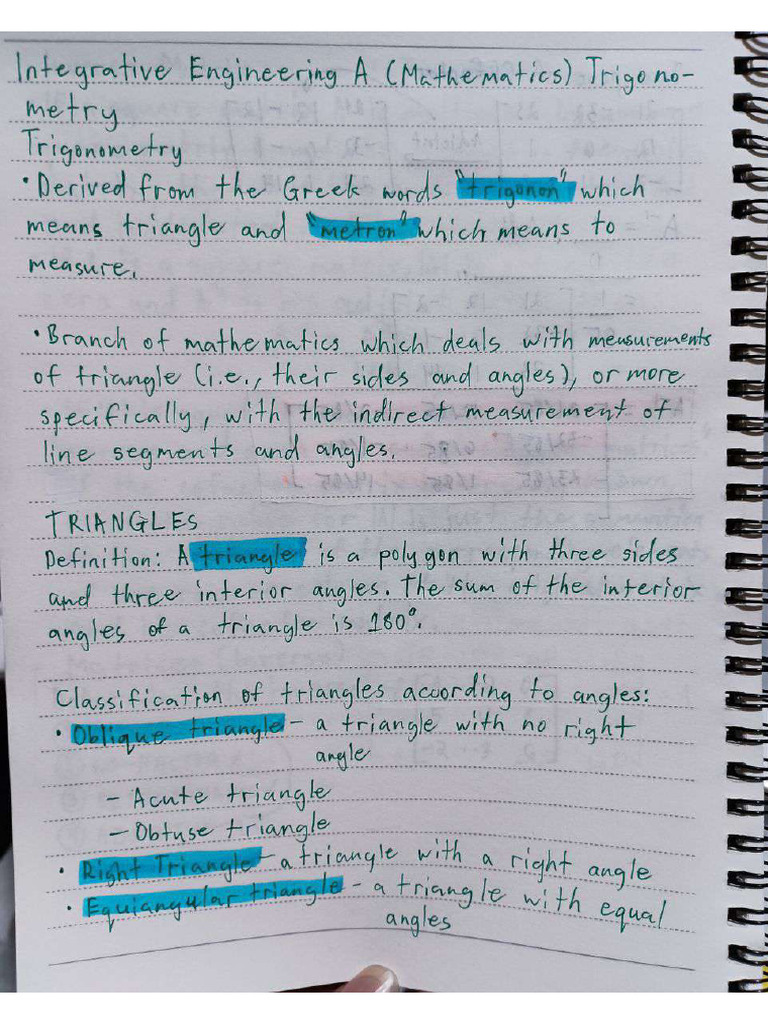 Integrative Engineering A (Mathematics) Trigono-
metry
Trigonometry
• Derived from the Greek words "trigonon" which
means triangle and "metron" which means to
measure.
• Branch of mathematics which deals with measurements
of triangle (i.e., their sides and angles), or more
specifically, with the indirect measurement of
line segments and angles.
TRIANGLES
Definition: A triangle is a polygon with three sides
and three interior angles. The sum of the interior
angles of a triangle is 180°.
Classification of triangles according to angles:
• Oblique triangle - a triangle with no right
angle
- Acute triangle
- Obtuse triangle
• Right Triangle - a triangle with a right angle
• Equiangular triangle - a triangle with equal
angles